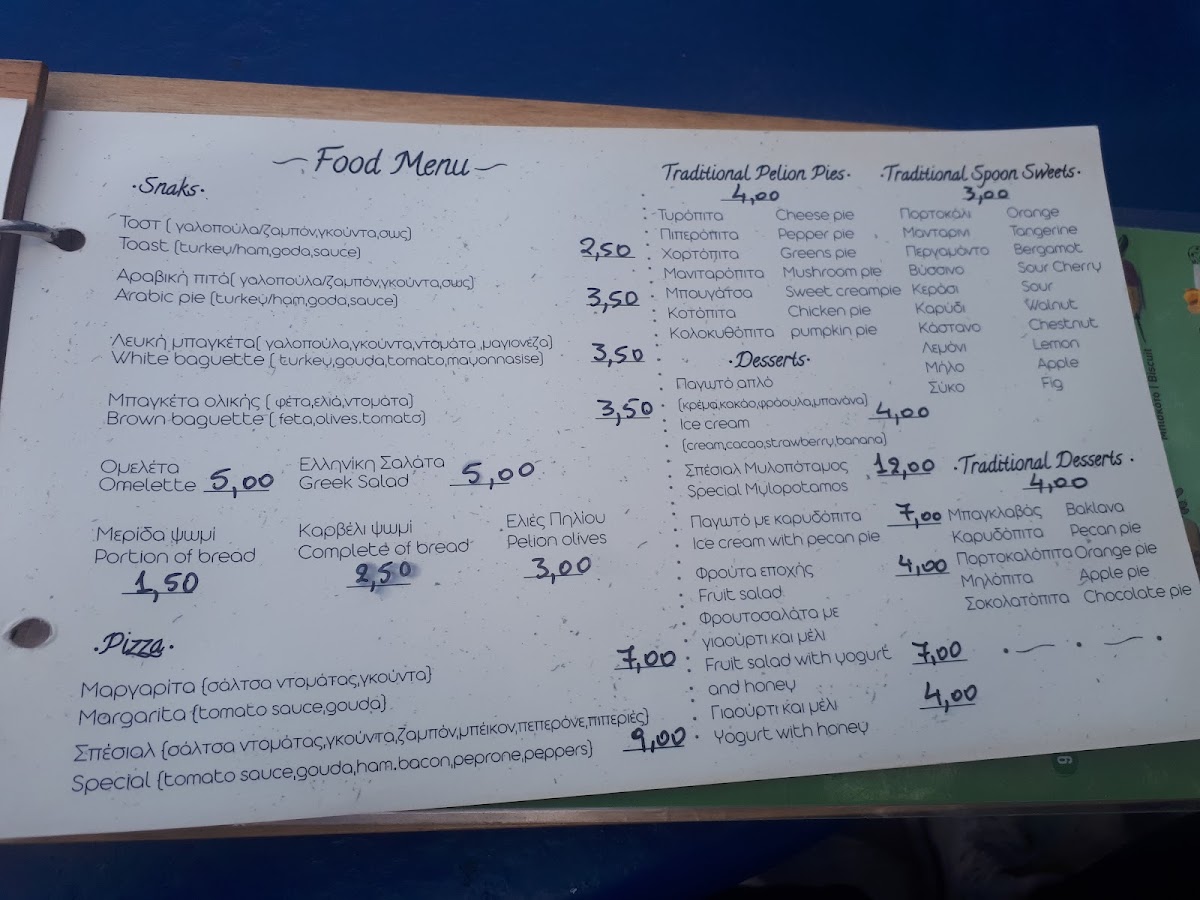 Food Menu
·Snaks·
Τοστ ( γαλοπούλα/ζαμπόν,γκούντα,σως)
Toast (turkey/ham,goda,sauce)
2,50
Αραβική πιτά( γαλοπούλα/ζαμπόν,γκούντα,σως)
Arabic pie (turkey/ham,goda,sauce)
3,50
Λευκή μπαγκέτα( γαλοπούλα,γκούντα,ντομάτα ,μαγιονέζα)
White baguette ( turkey,gouda,tomato,mayonnasise)
3,50
Μπαγκέτα ολικής ( φέτα,ελιά,ντοματα)
Brown baguette ( feta,olives.tomato)
3,50
Ομελέτα
Omelette 5,00
Ελληνίκη Σαλάτα
Greek Salad 5,00
Μερίδα ψωμί
Portion of bread
1,50
Καρβέλι ψωμί
Complete of bread
2,50
Ελιές Πηλίου
Pelion olives
3,00
·Pizza·
Μαργαρίτα (σάλτσα ντομάτας,γκούντα)
Margarita (tomato sauce,gouda)
7,00
Σπέσιαλ (σάλτσα ντομάτας,γκούντα,ζαμπόν,μπέικον,πεπερόνε,πιπεριές)
Special (tomato sauce,gouda,ham.bacon,peprone,peppers)
9,00
Traditional Pelion Pies·
4,00
Τυρόπιτα Cheese pie
Πιπερόπιτα Pepper pie
Χορτόπιτα Greens pie
Μανιταρόπιτα Mushroom pie
Μπουγάτσα Sweet creampie
Κοτόπιτα Chicken pie
Κολοκυθόπιτα pumpkin pie
·Desserts·
Παγωτό απλό
(κρέμα,κακάο,φράουλα,μπανάνα)
Ice cream 4,00
(cream,cacao,strawberry,banana)
Σπέσιαλ Μυλοπόταμος 12,00
Special Mylopotamos
Παγωτό με καρυδόπιτα 7,00
Ice cream with pecan pie
Φρούτα εποχής 4,00
Fruit salad
Φρουτοσαλάτα με
γιαούρτι και μέλι
Fruit salad with yogurt 7,00
and honey
Γιαούρτι και μέλι 4,00
Yogurt with honey
·Traditional Spoon Sweets·
3,00
Πορτοκάλι Orange
Μανταρίνι Tangerine
Περγαμόντο Bergamot
Βύσσινο Sour Cherry
Κεράσι Sour
Καρύδι Walnut
Κάστανο Chestnut
Λεμόνι Lemon
Μήλο Apple
Σύκο Fig
·Traditional Desserts·
4,00
Μπαγκλαβάς Baklava
Καρυδόπιτα Pecan pie
Πορτοκαλόπιτα Orange pie
Μηλόπιτα Apple pie
Σοκολατόπιτα Chocolate pie
Μπισκότο | Biscuit
9